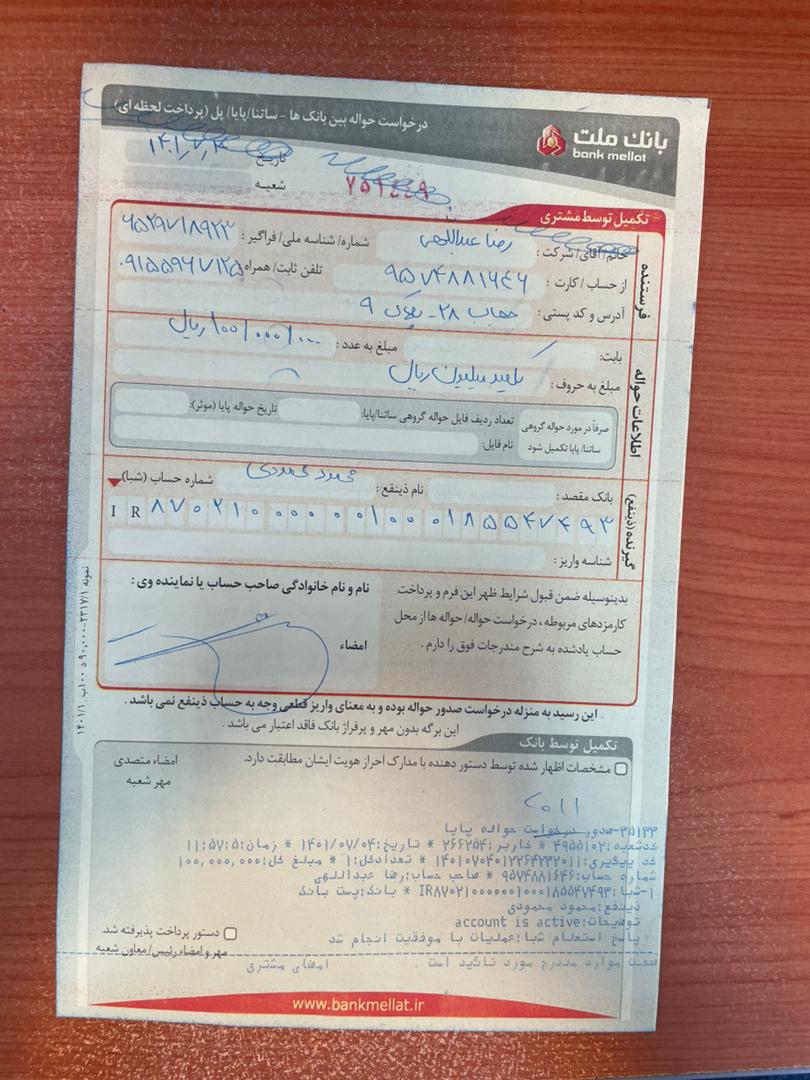 بانک ملت
bank mellat
درخواست حواله بین بانک ها - ساتنا/پایا/ پل (پرداخت لحظه ای)
تاریخ
شعبه
تکمیل توسط مشتری
فرستنده
خانم/آقای/ شرکت: رضا عبداللهی شماره/ شناسه ملی/ فراگیر: ۶۵۲۹۷۱۸۹۲۳
از حساب/ کارت: ۹۵۷۴۸۸۱۶۴۶ تلفن ثابت/ همراه: ۰۹۱۵۵۹۶۷۱۲۵
آدرس و کد پستی: حجاب ۲۸- پلاک ۹
اطلاعات حواله
بابت: مبلغ به عدد: ۱۰۰/۰۰۰/۰۰۰ ریال
مبلغ به حروف: یکصد میلیون ریال
صرفاً در مورد حواله گروهی ساتنا/ پایا تکمیل شود
تعداد ردیف فایل حواله گروهی ساتنا/پایا: تاریخ حواله پایا (موثر):
نام فایل:
گیرنده (ذینفع)
بانک مقصد: نام ذینفع: محمود محمودی شماره حساب (شبا)
IR ۸۷۰۲۱۰۰۰۰۰۰۰۱۰۰۰۱۸۵۵۴۷۴۹۳
شناسه واریز:
بدینوسیله ضمن قبول شرایط ظهر این فرم و پرداخت
کارمزدهای مربوطه، درخواست حواله/ حواله ها از محل
حساب یادشده به شرح مندرجات فوق را دارم.
نام و نام خانوادگی صاحب حساب یا نماینده وی:
امضاء
این رسید به منزله درخواست صدور حواله بوده و به معنای واریز قطعی وجه به حساب ذینفع نمی باشد.
این برگه بدون مهر و پرفراژ بانک فاقد اعتبار می باشد.
تکمیل توسط بانک
مشخصات اظهار شده توسط دستور دهنده با مدارک احراز هویت ایشان مطابقت دارد.
امضاء متصدی
مهر شعبه
۳۵۱۳۳-صدور درخواست حواله پایا
کدشعبه:۴۹۵۵۱۰۲ * کاربر:۲۶۶۲۵۴ * تاریخ:۱۴۰۱/۰۷/۰۴ * زمان:۱۱:۵۷:۵
کد پیگیری:۱۴۰۱۰۷۰۴۰۱۲۲۶۴۲۳۲۰۱۱ * تعدادکل:۱ * مبلغ کل:۱۰۰,۰۰۰,۰۰۰
شماره حساب:۹۵۷۴۸۸۱۶۴۶ * صاحب حساب:رضا عبداللهی
۱-شبا:IR۸۷۰۲۱۰۰۰۰۰۰۰۱۰۰۰۱۸۵۵۴۷۴۹۳ * بانک:پست بانک
ذینفع:محمود محمودی
توضیحات:account is active
پاسخ استعلام شبا:عملیات با موفقیت انجام شد
صحت موارد مندرج مورد تائید است . امضای مشتری
دستور پرداخت پذیرفته شد.
مهر و امضاء رئیس/ معاون شعبه
www.bankmellat.ir